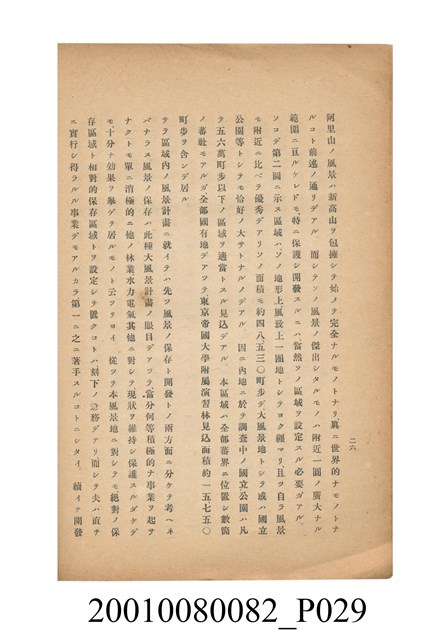 二六
阿里山ノ風景ハ新高山ヲ包擁シテ始メテ完全ナルモノトナリ眞ニ世界的ナモノトナ
ルコト前述ノ通リデアル 而シテソノ風景ノ傑出シタルモノハ附近一圓ノ廣大ナル
範圍ニ亘ルケレドモ、特ニ保護シ開發スルニハ當然ソノ區域ヲ設定スル必要ガアル、
ソコデ第二圖ニ示ス區域ハソノ地形上、風致上一團地トシテヨク纏マリ且ツ自ラ風景
モ附近ニ比ベテ優秀デアリソノ面積モ約四八五三〇町歩デ大風景地トシテ或ハ國立
公園等トシテモ恰好ノ大サトナルノデアル 因ニ内地ニ於テ調査中ノ國立公園ハ凡
テ五六萬町歩以下ノ區域ヲ適當トスル見込デアル 本區域ハ全部蕃界ニ位置シ數箇
ノ蕃社モアルガ、全部國有地デアツテ、東京帝國大學附屬演習林見込面積約一五七五〇
町歩ヲ含ンデ居ル
サテ區域内ノ風景計畫ニ就イテハ先ヅ風景ノ保存ト開發トノ兩方面ニ分ケテ考ヘネ
バナラヌ風景ノ保存ハ此種大風景計畫ノ眼目デアツテ、當分何等積極的ナ事業ヲ起サ
ナクトモ單ニ消極的ニ他ノ林業水力電氣其他ニ對シテ現狀ヲ維持シ保護スルダケデ
モ十分ナ効果ヲ擧ゲテ居ルモノト云フテヨイ、從ツテ本風景地ニ對シテモ絶對ノ保
存區域ト相對的保存區域トヲ設定シテ置クコトハ刻下ノ急務デアリ而シテ夫ハ直チ
ニ實行シ得ラルル事業デモアルカラ第一ニ之ニ著手スルコトニシタイ、續イテ開發
20010080082_P029